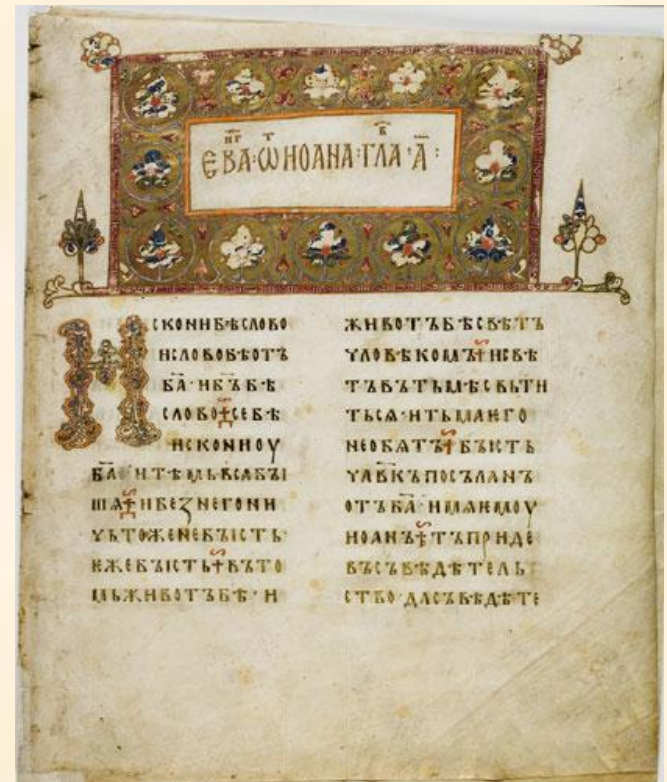 ЕВА҃НГ·Ѡ҃Т ИОАНА·ГЛА҃В·А҃:
ИСКОНИБѢСЛОВО
ИСЛОВОБѢОТЪ
БА҃·ИБ҃ЪБѢ
СЛОВО·СЕБѢ
ИСКОНИОУ
БА҃·ИТѢМЬВСѦБꙐ
ШѦ·ИБЕЗНЕГОНИ
ЧЬТОЖЕНЕБꙐСТЬ·
ЕЖЕБꙐСТЬ·ВЪТО
МЬЖИВОТЪБѢ·И
ЖИВОТЪБѢСВѢТЪ
ЧЛОВѢКОМЪ·ИСВѢ
ТЪВЪТЬМѢСВЬТИ
ТЬСѦ·ИТЬМАѤГО
НЕОБѦТЪ·БꙐСТЬ
ЧЛВ҃КЪПОСЪЛАНЪ
ОТЪБА҃·ИМѦѤМОУ
ИОАНЪ·ТЪПРИДЕ
ВЪСЪВѢДѢТЕЛЬ
СТВО·ДАСЪВѢДѢТЕ